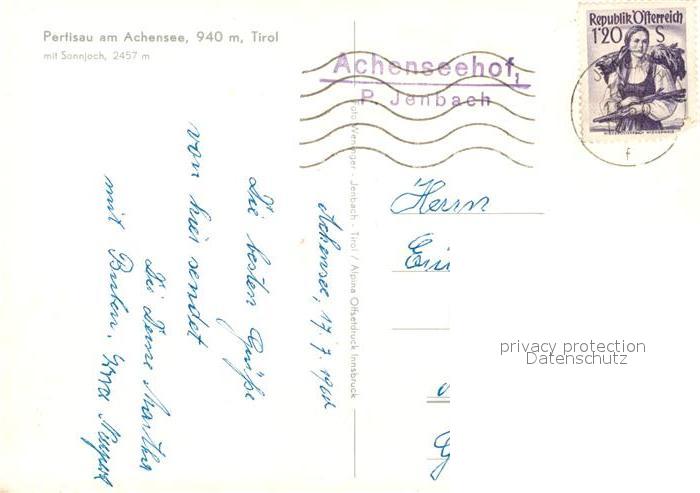 Pertisau am Achensee, 940 m, Tirol
mit Sonnjoch, 2457 m
Achenseehof,
P. Jenbach
Republik Österreich
1'20 S
f
Foto Weninger - Jenbach - Tirol / Alpina Offsetdruck Innsbruck
Achensee, 17. 7. 
Die besten Grüße
von hier sendet
Martha
mit
Herrn
privacy protection
Datenschutz